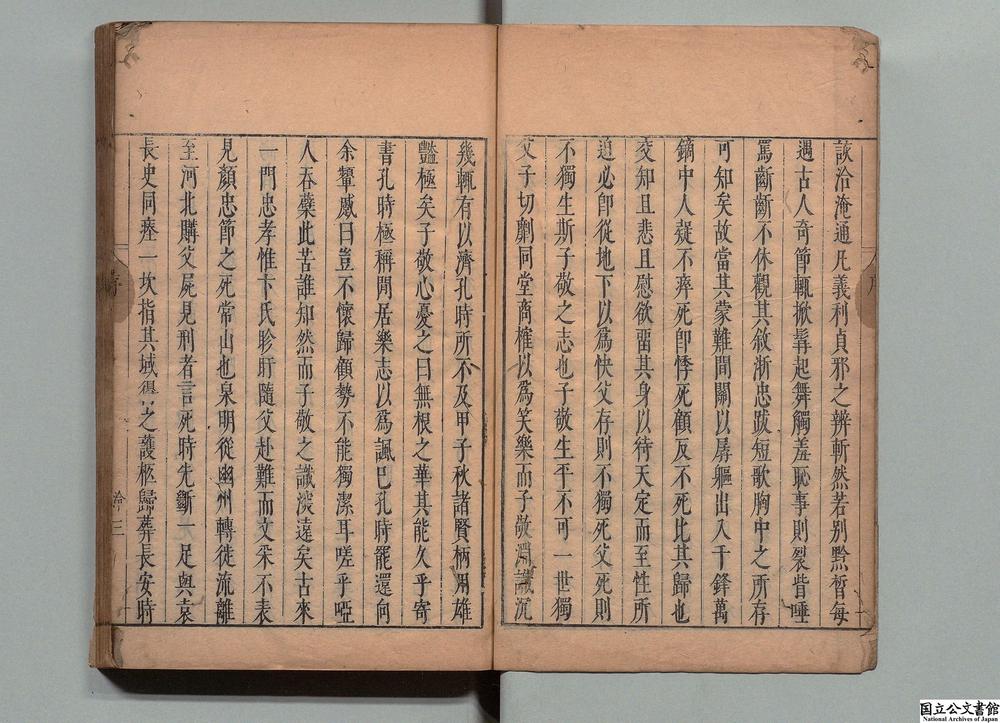 該洽淹通凡義利貞邪之辨斬然若別黙晳每
遇古人奇節輒掀髯起舞觸羞恥事則裂眥唾
罵齗齗不休觀其敘浙忠跋短歌胸中之所存
可知矣故當其蒙難間關以孱軀出入千鋒萬
鏑中人疑不瘁死卽悸死顧反不死比其歸也
交知且悲且慰欲畱其身以待天定而至性所
迫必卽從地下以爲快父存則不獨死父死則
不獨生斯子敬之志也子敬生平不可一世獨
父子切劘同堂商榷以爲笑樂而子敬淵識沉
幾輒有以濟孔時所不及甲子秋諸賢柄用雄
豔極矣子敬心憂之曰無根之華其能久乎寄
書孔時極稱閒居樂志以爲諷巳孔時罷還向
余顰蹙曰豈不懷歸顧勢不能獨潔耳嗟乎啞
人吞蘗此苦誰知然而子敬之識淡遠矣古來
一門忠孝惟卞氏眕盱隨父赴難而文采不表
見顏忠節之死常山也泉明從幽州轉徙流離
至河北購父屍見刑者言死時先斷一足與袁
長史同瘞一坎指其域得之護柩歸葬長安時
序
序
三
国立公文書館
National Archives of Japan